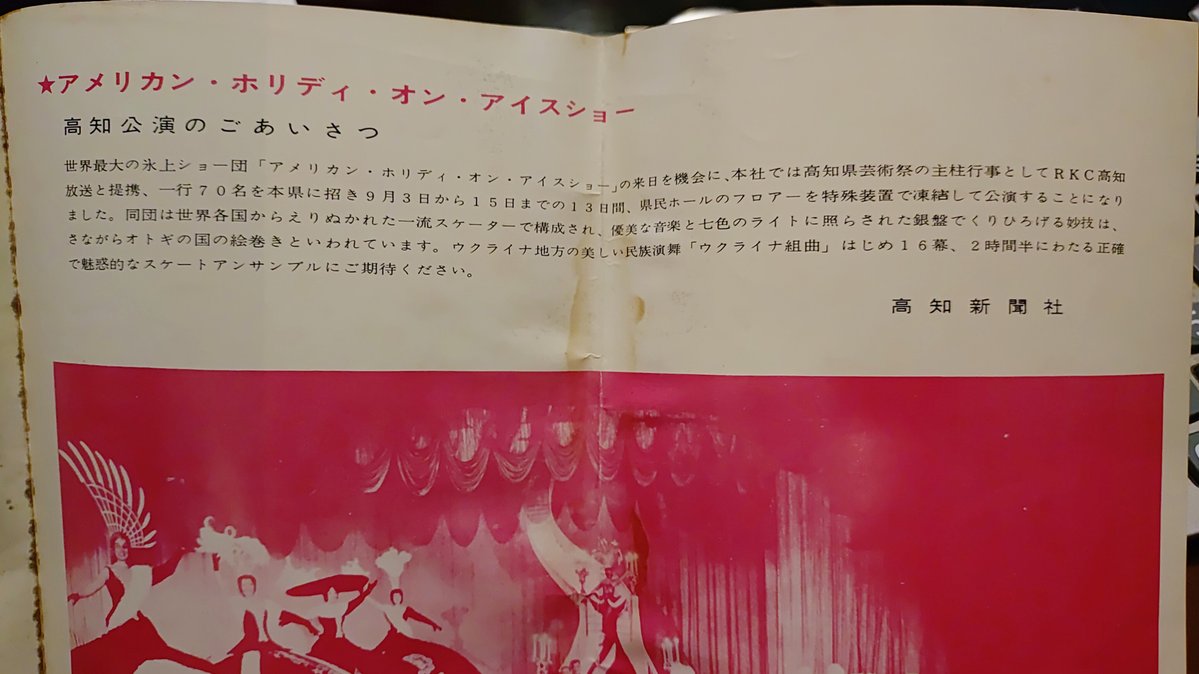 ★アメリカン・ホリディ・オン・アイスショー
高知公演のごあいさつ
世界最大の氷上ショー団「アメリカン・ホリディ・オン・アイスショー」の来日を機会に、本社では高知県芸術祭の主柱行事としてRKC高知
放送と提携、一行70名を本県に招き9月3日から15日までの13日間、県民ホールのフロアーを特殊装置で凍結して公演することになり
ました。同団は世界各国からえりぬかれた一流スケーターで構成され、優美な音楽と七色のライトに照らされた銀盤でくりひろげる妙技は、
さながらオトギの国の絵巻きといわれています。ウクライナ地方の美しい民族演舞「ウクライナ組曲」はじめ16幕、2時間半にわたる正確
で魅惑的なスケートアンサンブルにご期待ください。
高知新聞社